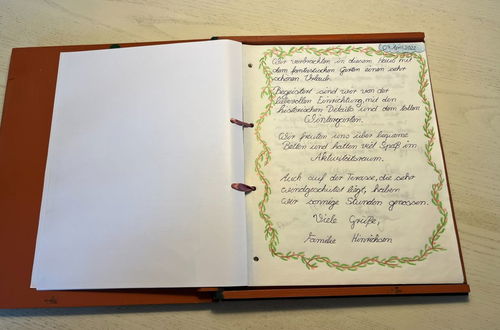 April 2022
Wir verbrachten in diesem Haus mit
dem fantastischen Garten einen sehr
schönen Urlaub.
Begeistert sind wir von der
liebevollen Einrichtung, mit den
historischen Details und dem tollen
Wintergarten.
Wir freuten uns über bequeme
Betten und hatten viel Spaß im
Aktivitätsraum.
Auch auf der Terasse, die sehr
windgeschützt liegt, haben
wir sonnige Stunden genossen.
Viele Grüße,
Familie Hinrichsen